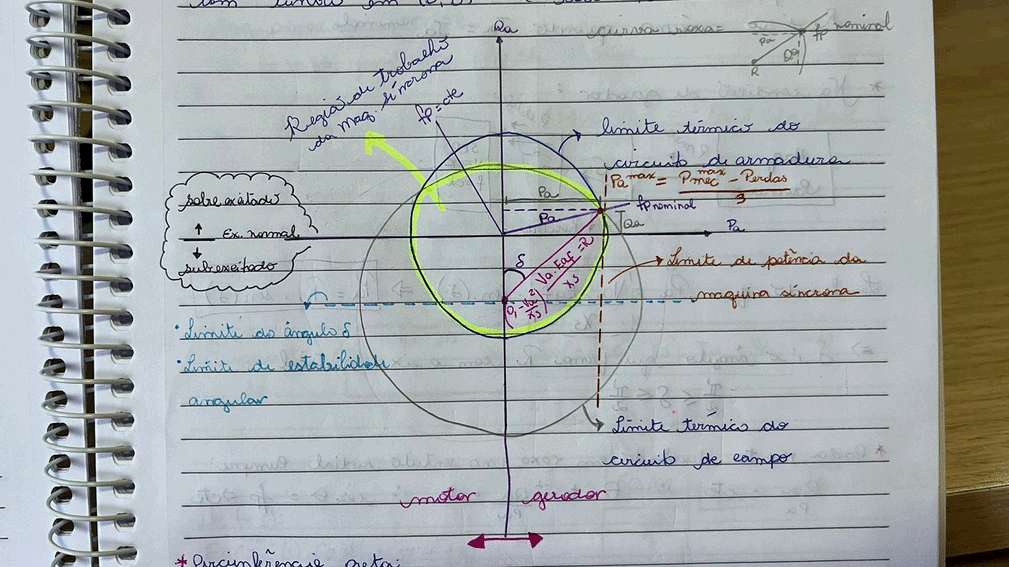 Qa
fp nominal
Pa
Qa
R
Região de trabalho
da maq. síncrona
fp = cte
limite térmico do
circuito de armadura
Pa^max = Pmec^max - Perdas
3
sobreexitado
↑ Ex. normal
↓
subexeitado
Pa
Pa
fp nominal
Qa
Pa
δ
Va.Eaf = R
Xs
(0, -Va²
Xs)
Limite de potência da
maquina síncrona
• Limite do ângulo δ
• Limite de estabilidade
angular
Limite térmico do
circuito de campo
motor gerador
* Circunferência preta: